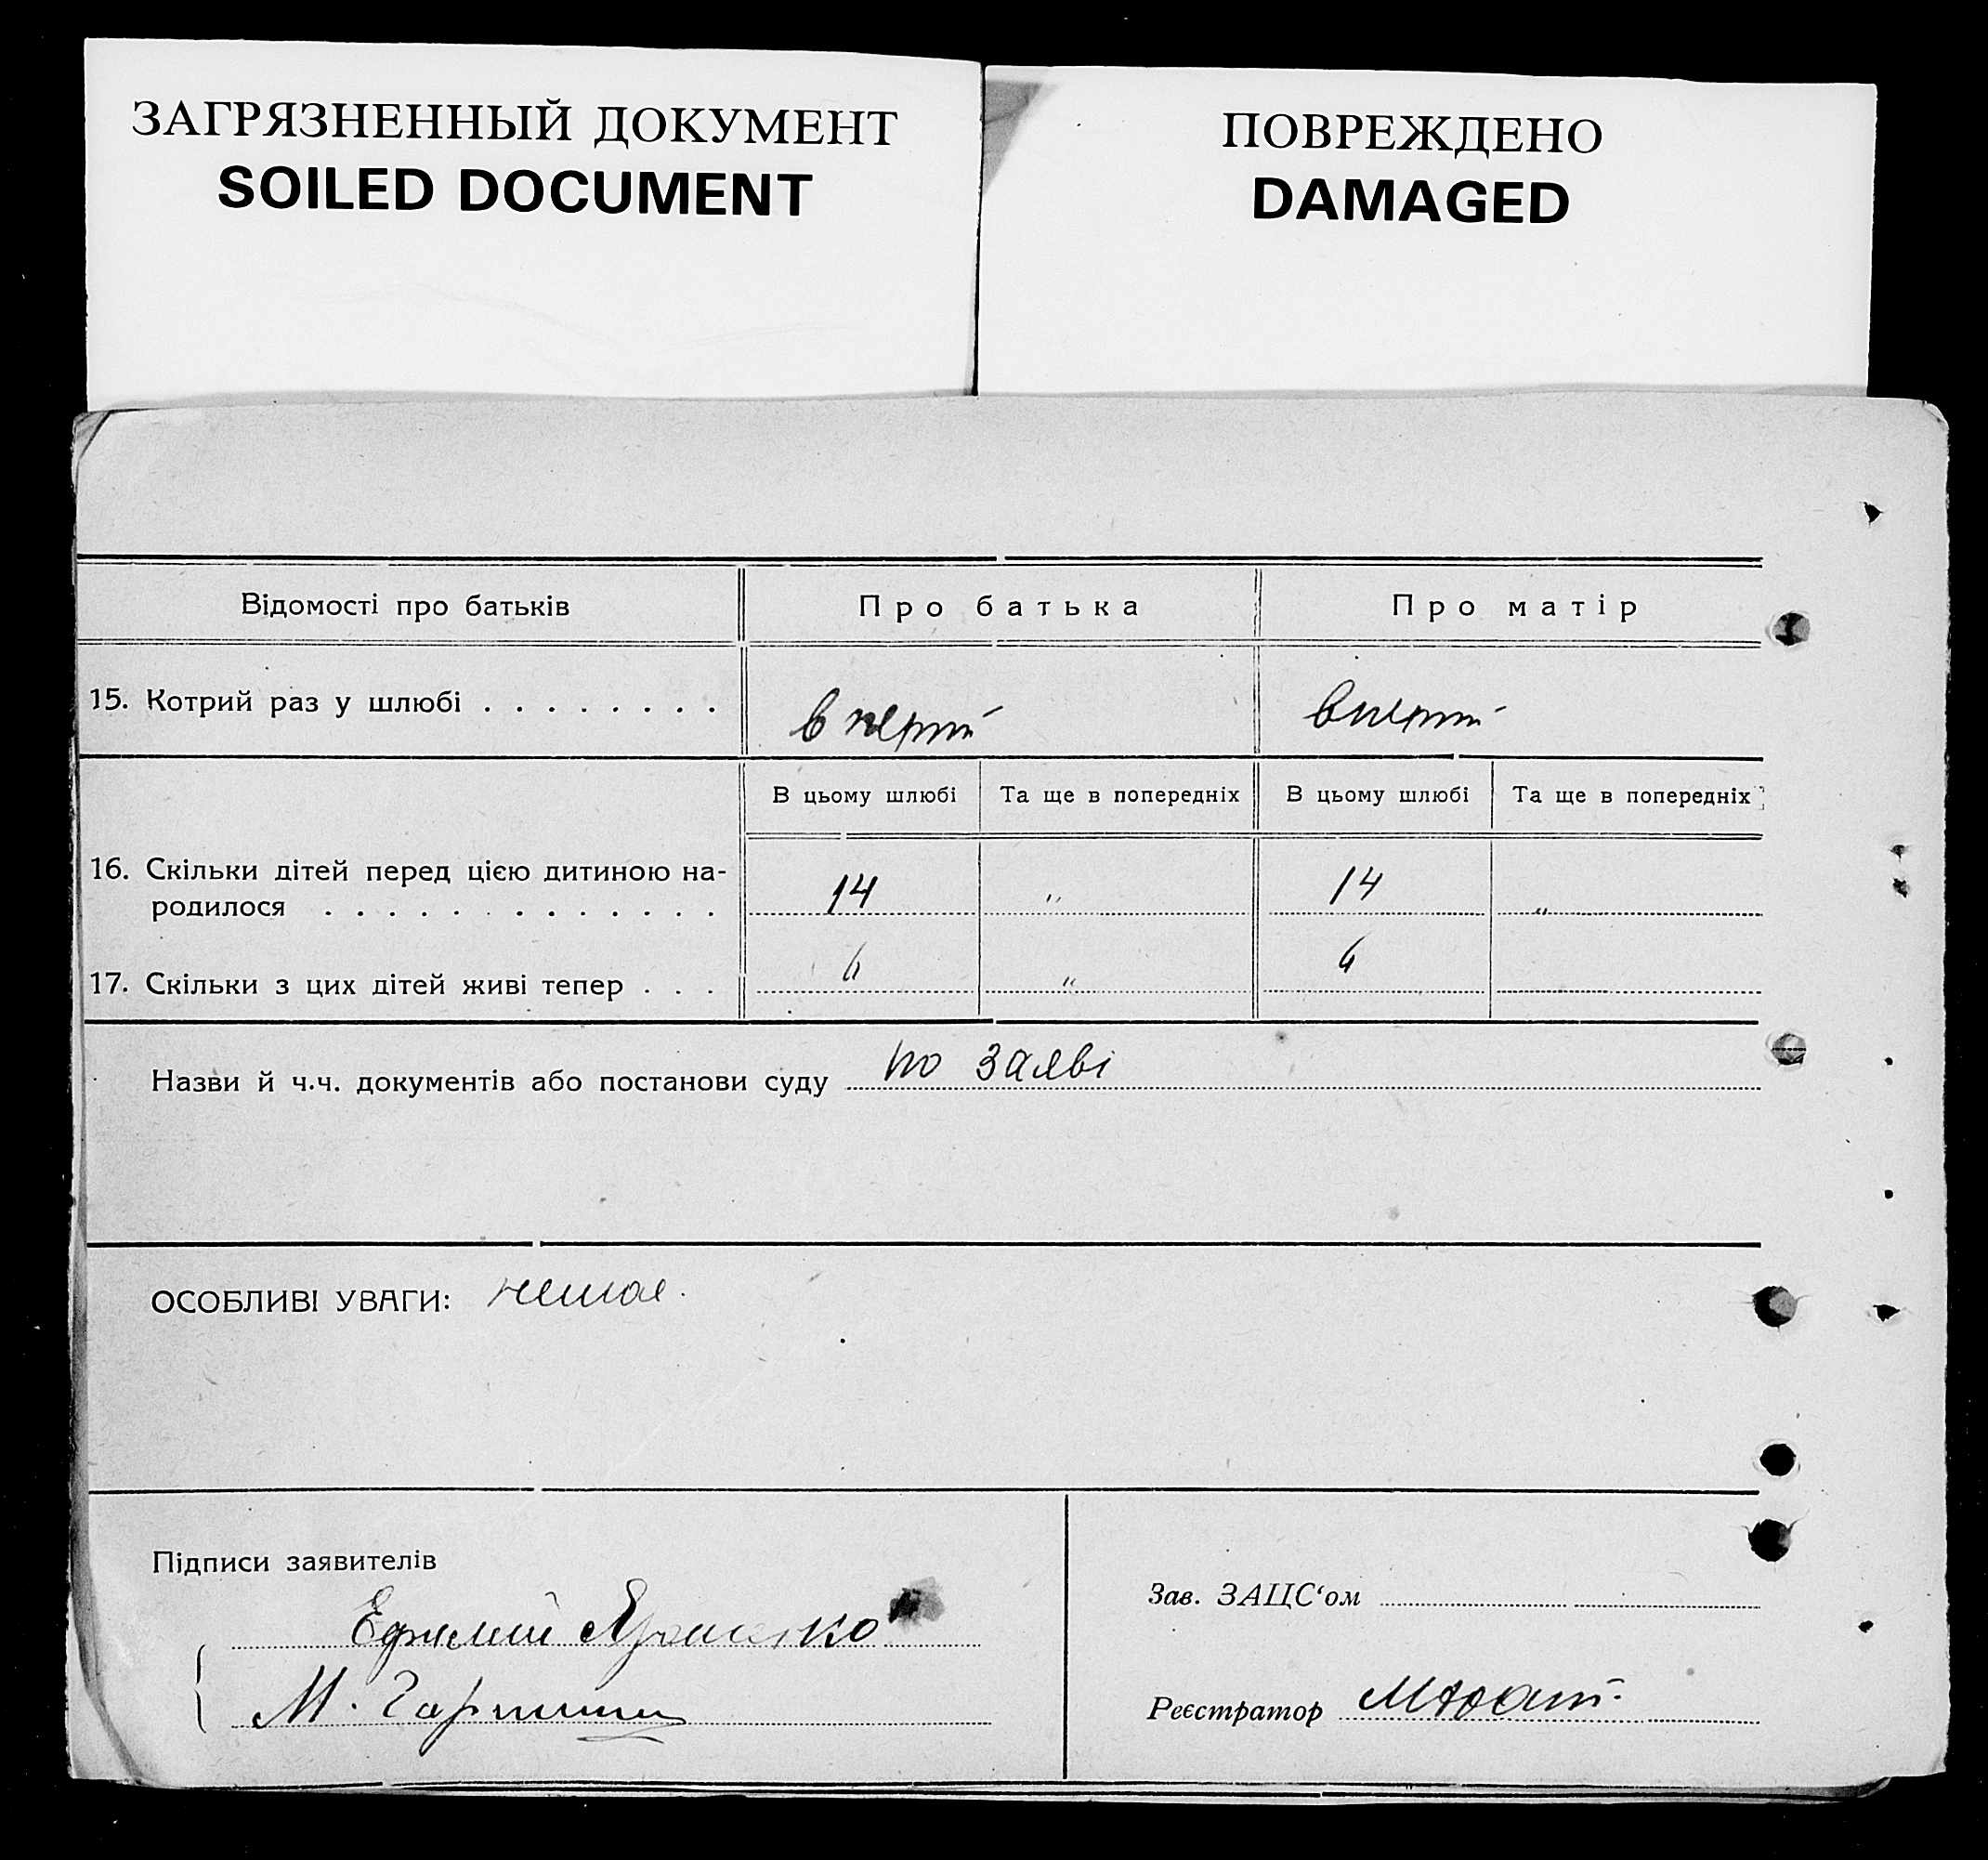 ЗАГРЯЗНЕННЫЙ ДОКУМЕНТ
SOILED DOCUMENT
ПОВРЕЖДЕНО
DAMAGED
Відомості про батьків
Про батька
Про матір
15. Котрий раз у шлюбі . . . . . . . .
В цьому шлюбі
Та ще в попередніх
В цьому шлюбі
Та ще в попередніх
16. Скільки дітей перед цією дитиною на-
родилося . . . . . . . . . . . . .
14
"
14
"
17. Скільки з цих дітей живі тепер . . .
6
"
6
Назви й ч.ч. документів або постанови суду по заяві
ОСОБЛИВІ УВАГИ: немає.
Підписи заявителів
Зав. ЗАЦС‘ом
М.
Реєстратор